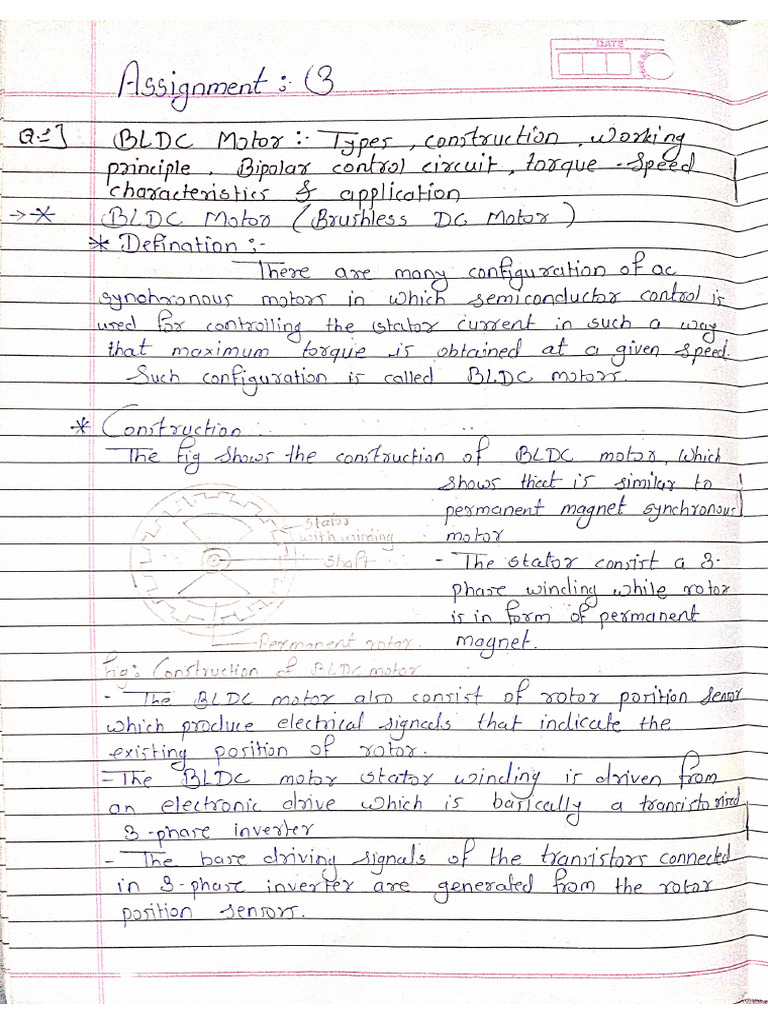 DATE
Assignment :- 3
Q.1] BLDC Motor :- Types, construction, working
principle, Bipolar control circuit, torque-speed
characteristics & application
→* BLDC Motor (Brushless DC Motor)
* Defination :-
There are many configuration of ac
synchronous motors in which semiconductor control is
used for controlling the stator current in such a way
that maximum torque is obtained at a given speed.
Such configuration is called BLDC motors.
* Construction
The fig shows the construction of BLDC motor, which
shows that is similar to
permanent magnet synchronous
motor
- The stator consist a 3-
phase winding while rotor
is in form of permanent
magnet.
stator
with winding
shaft
Permanent rotor
Fig: Construction of BLDC motor
- The BLDC motor also consist of rotor position sensor
which produce electrical signals that indicate the
existing position of rotor.
- The BLDC motor stator winding is driven from
an electronic drive which is basically a transistorised
3-phase inverter
- The base driving signals of the transistors connected
in 3-phase inverter are generated from the rotor
position sensors.